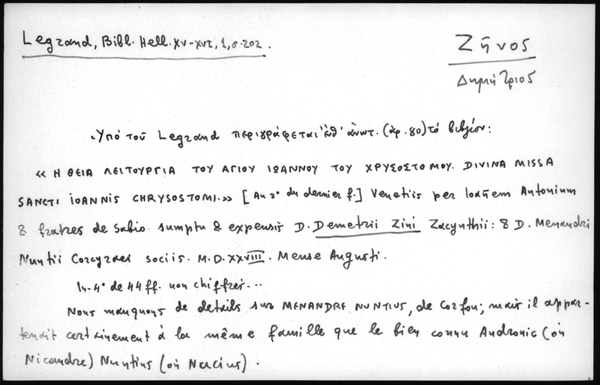 Legrand, Bibl. Hell. XV-XVI, 1, σ. 202.
Ζῆνος
Δημήτριος
Ὑπὸ τοῦ Legrand περιγράφεται ἐνθ' ἀνωτ. (ἀρ. 80) τὸ βιβλίον:
« Η ΘΕΙΑ ΛΕΙΤΟΥΡΓΙΑ ΤΟΥ ΑΓΙΟΥ ΙΩΑΝΝΟΥ ΤΟΥ ΧΡΥΣΟΣΤΟΜΟΥ. DIVINA MISSA
SANCTI IOANNIS CHRYSOSTOMI.» [Au rº du dernier f.] Venetiis per Ioāñem Antonium
& fratres de Sabio. sumptu & expensis D. Demetrii Zini Zacynthii: & D. Menandri
Nuntii Corcyraei sociis. M.D.XXVIII. Mense Augusti.
In-4º de 44 ff. non chiffrés...
Nous manquons de détails sur MENANDRE NUNTIUS, de Corfou; mais il appar-
tenait certainement à la même famille que le bien connu Andronic (où
Nicandre) Nuntius (où Nucius).